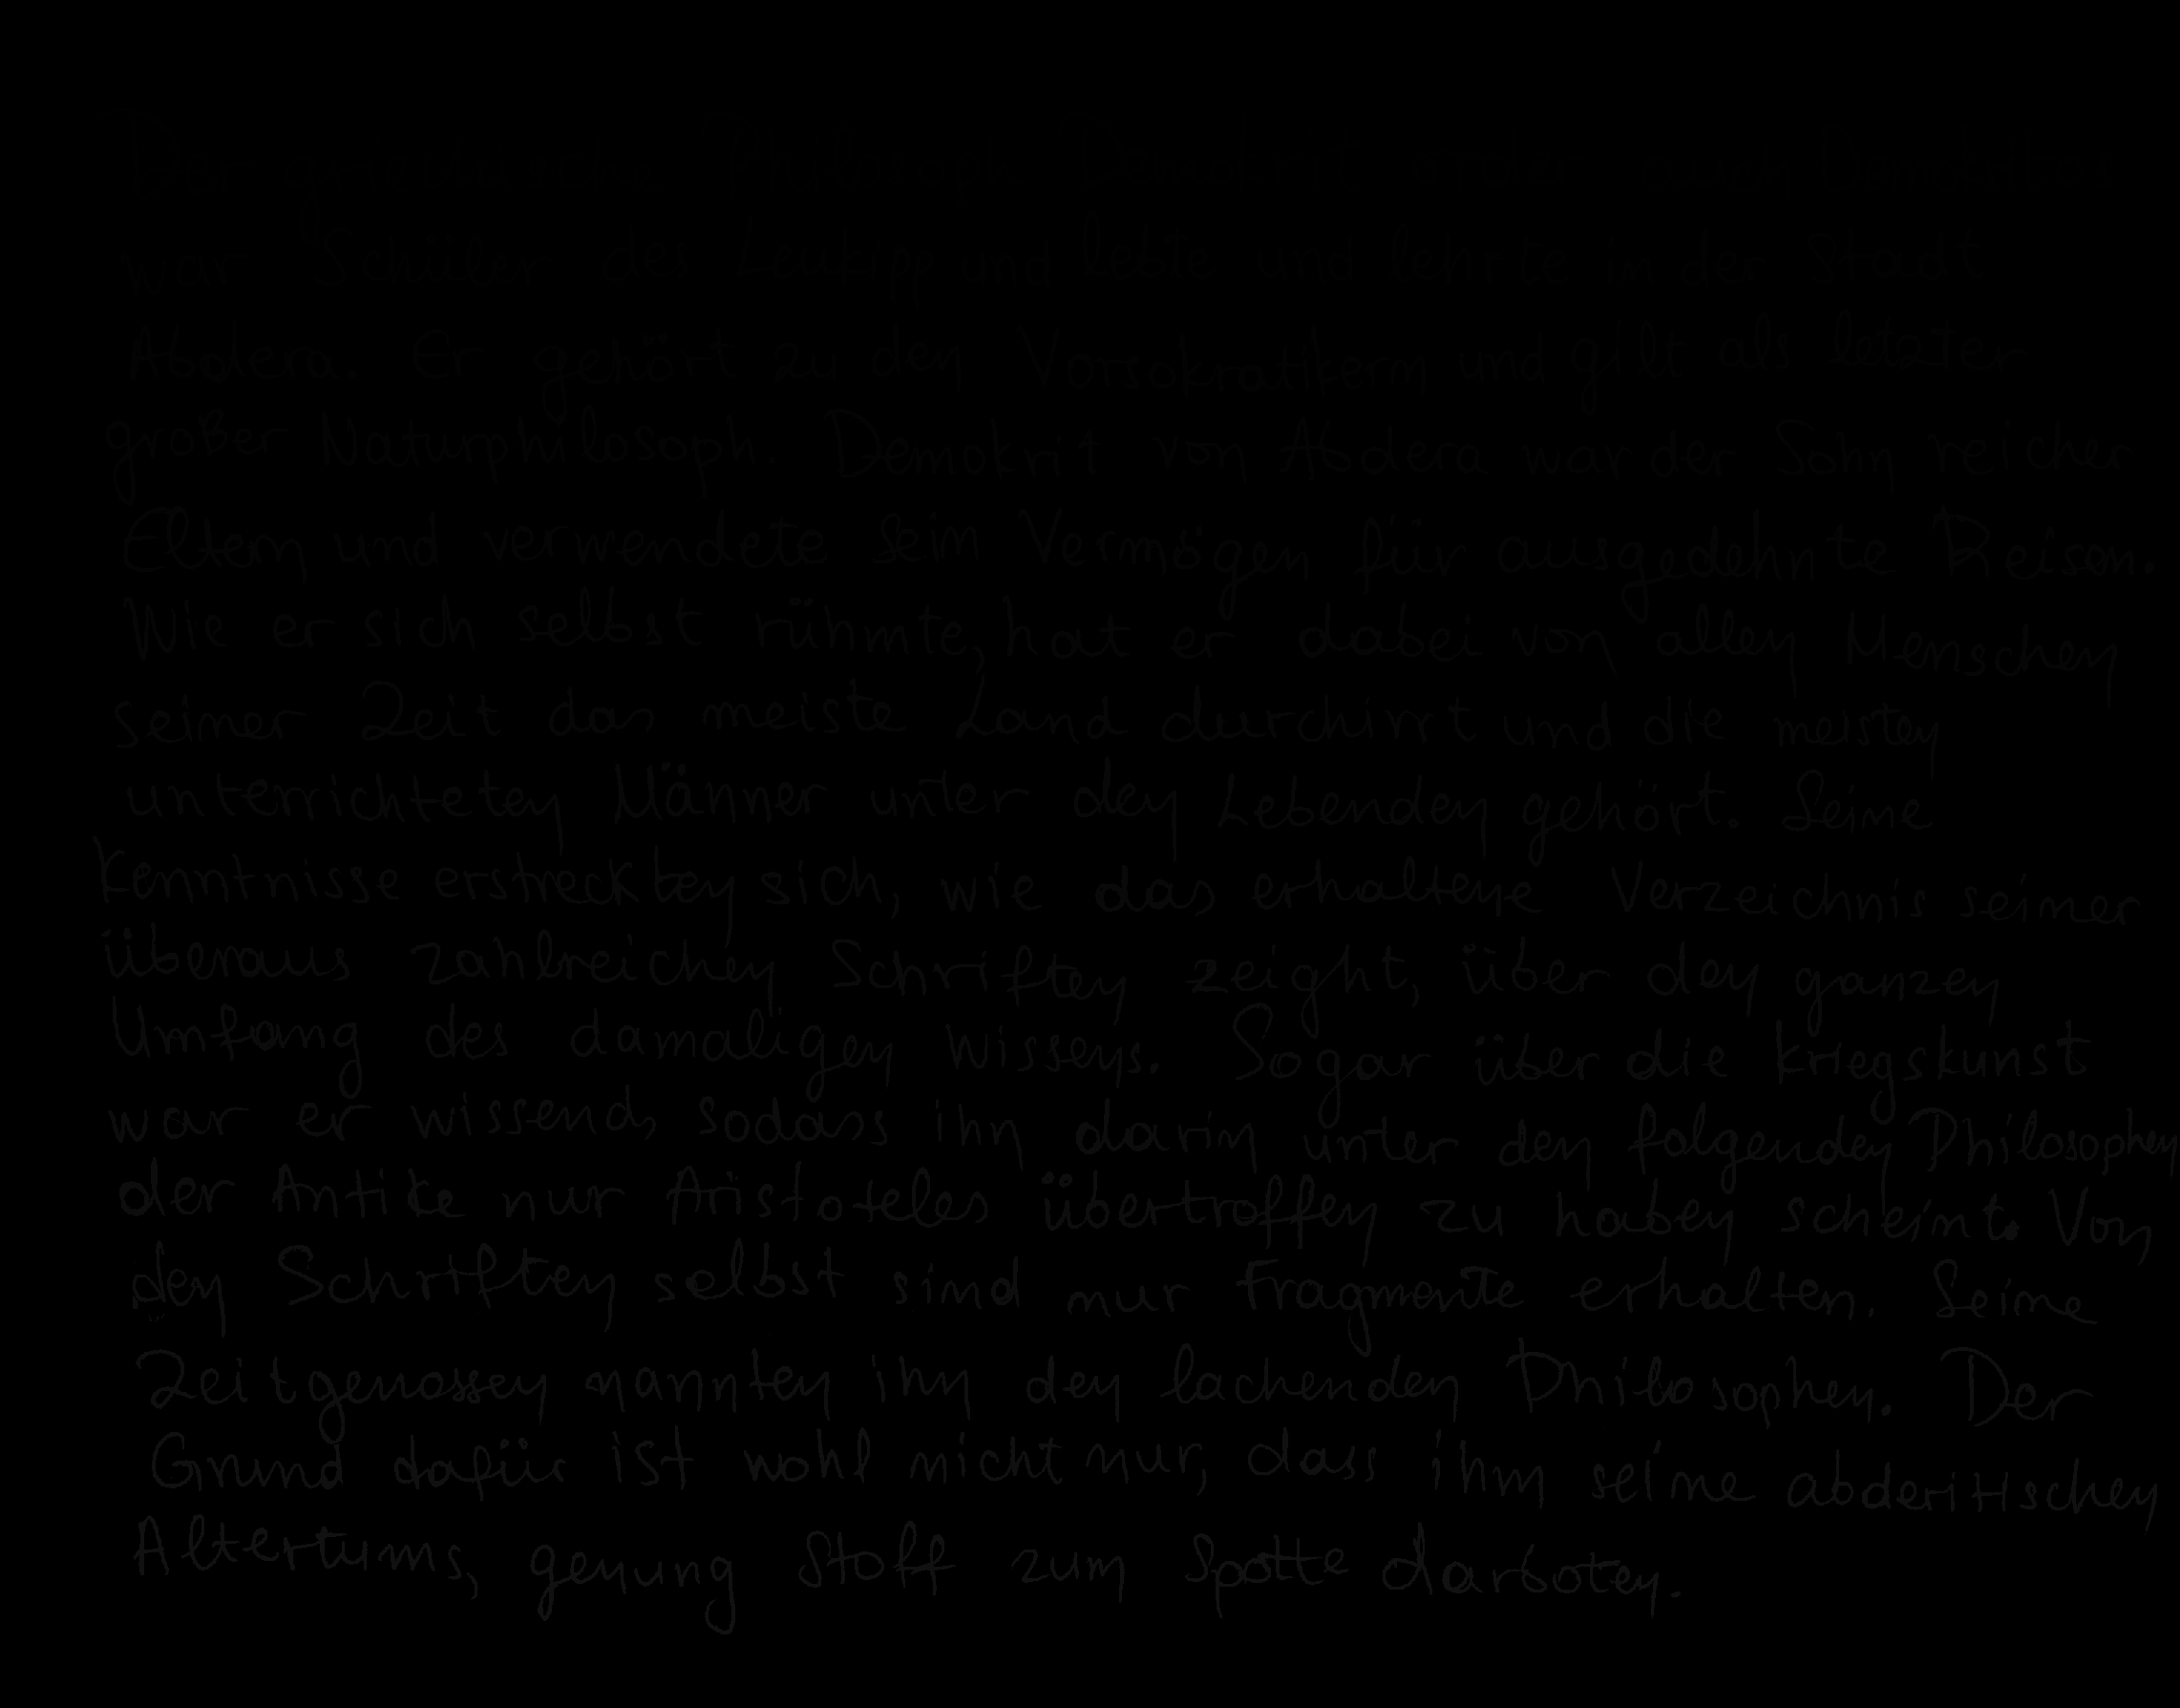 war Schüler des Leukipp und lebte und lehrte in der Stadt
Abdera. Er gehört zu den Vorsokratikern und gilt als letzter
großer Naturphilosoph. Demokrit von Abdera war der Sohn reicher
Eltern und verwendete sein Vermögen für ausgedehnte Reisen.
Wie er sich selbst rühmte, hat er dabei von allen Menschen
seiner Zeit das meiste Land durchirrt und die meisten
unterrichteten Männer unter den Lebenden gehört. Seine
Kenntnisse erstreckten sich, wie das erhaltene Verzeichnis seiner
überaus zahlreichen Schriften zeight, über den ganzen
Umfang des damaligen wissens. Sogar über die Kriegskunst
war er wissend, sodass ihn darin unter den folgenden Philosophen
der Antike nur Aristoteles übertroffen zu haben scheint. Von
den Schriften selbst sind nur Fragmente erhalten. Seine
Zeitgenossen nannten ihn den lachenden Philosophen. Der
Grund dafür ist wohl nicht nur, dass ihm seine abderitischen
Altertums, genung Stoff zum Spotte darboten.